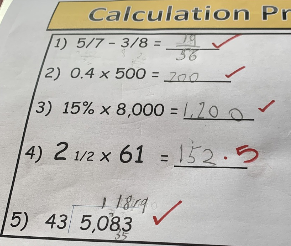 Calculation Pr
1) 5/7 - 3/8 = 19/56
2) 0.4 × 500 = 200
3) 15% × 8,000 = 1,200
4) 2 1/2 × 61 = 152.5
5) 43 5,083